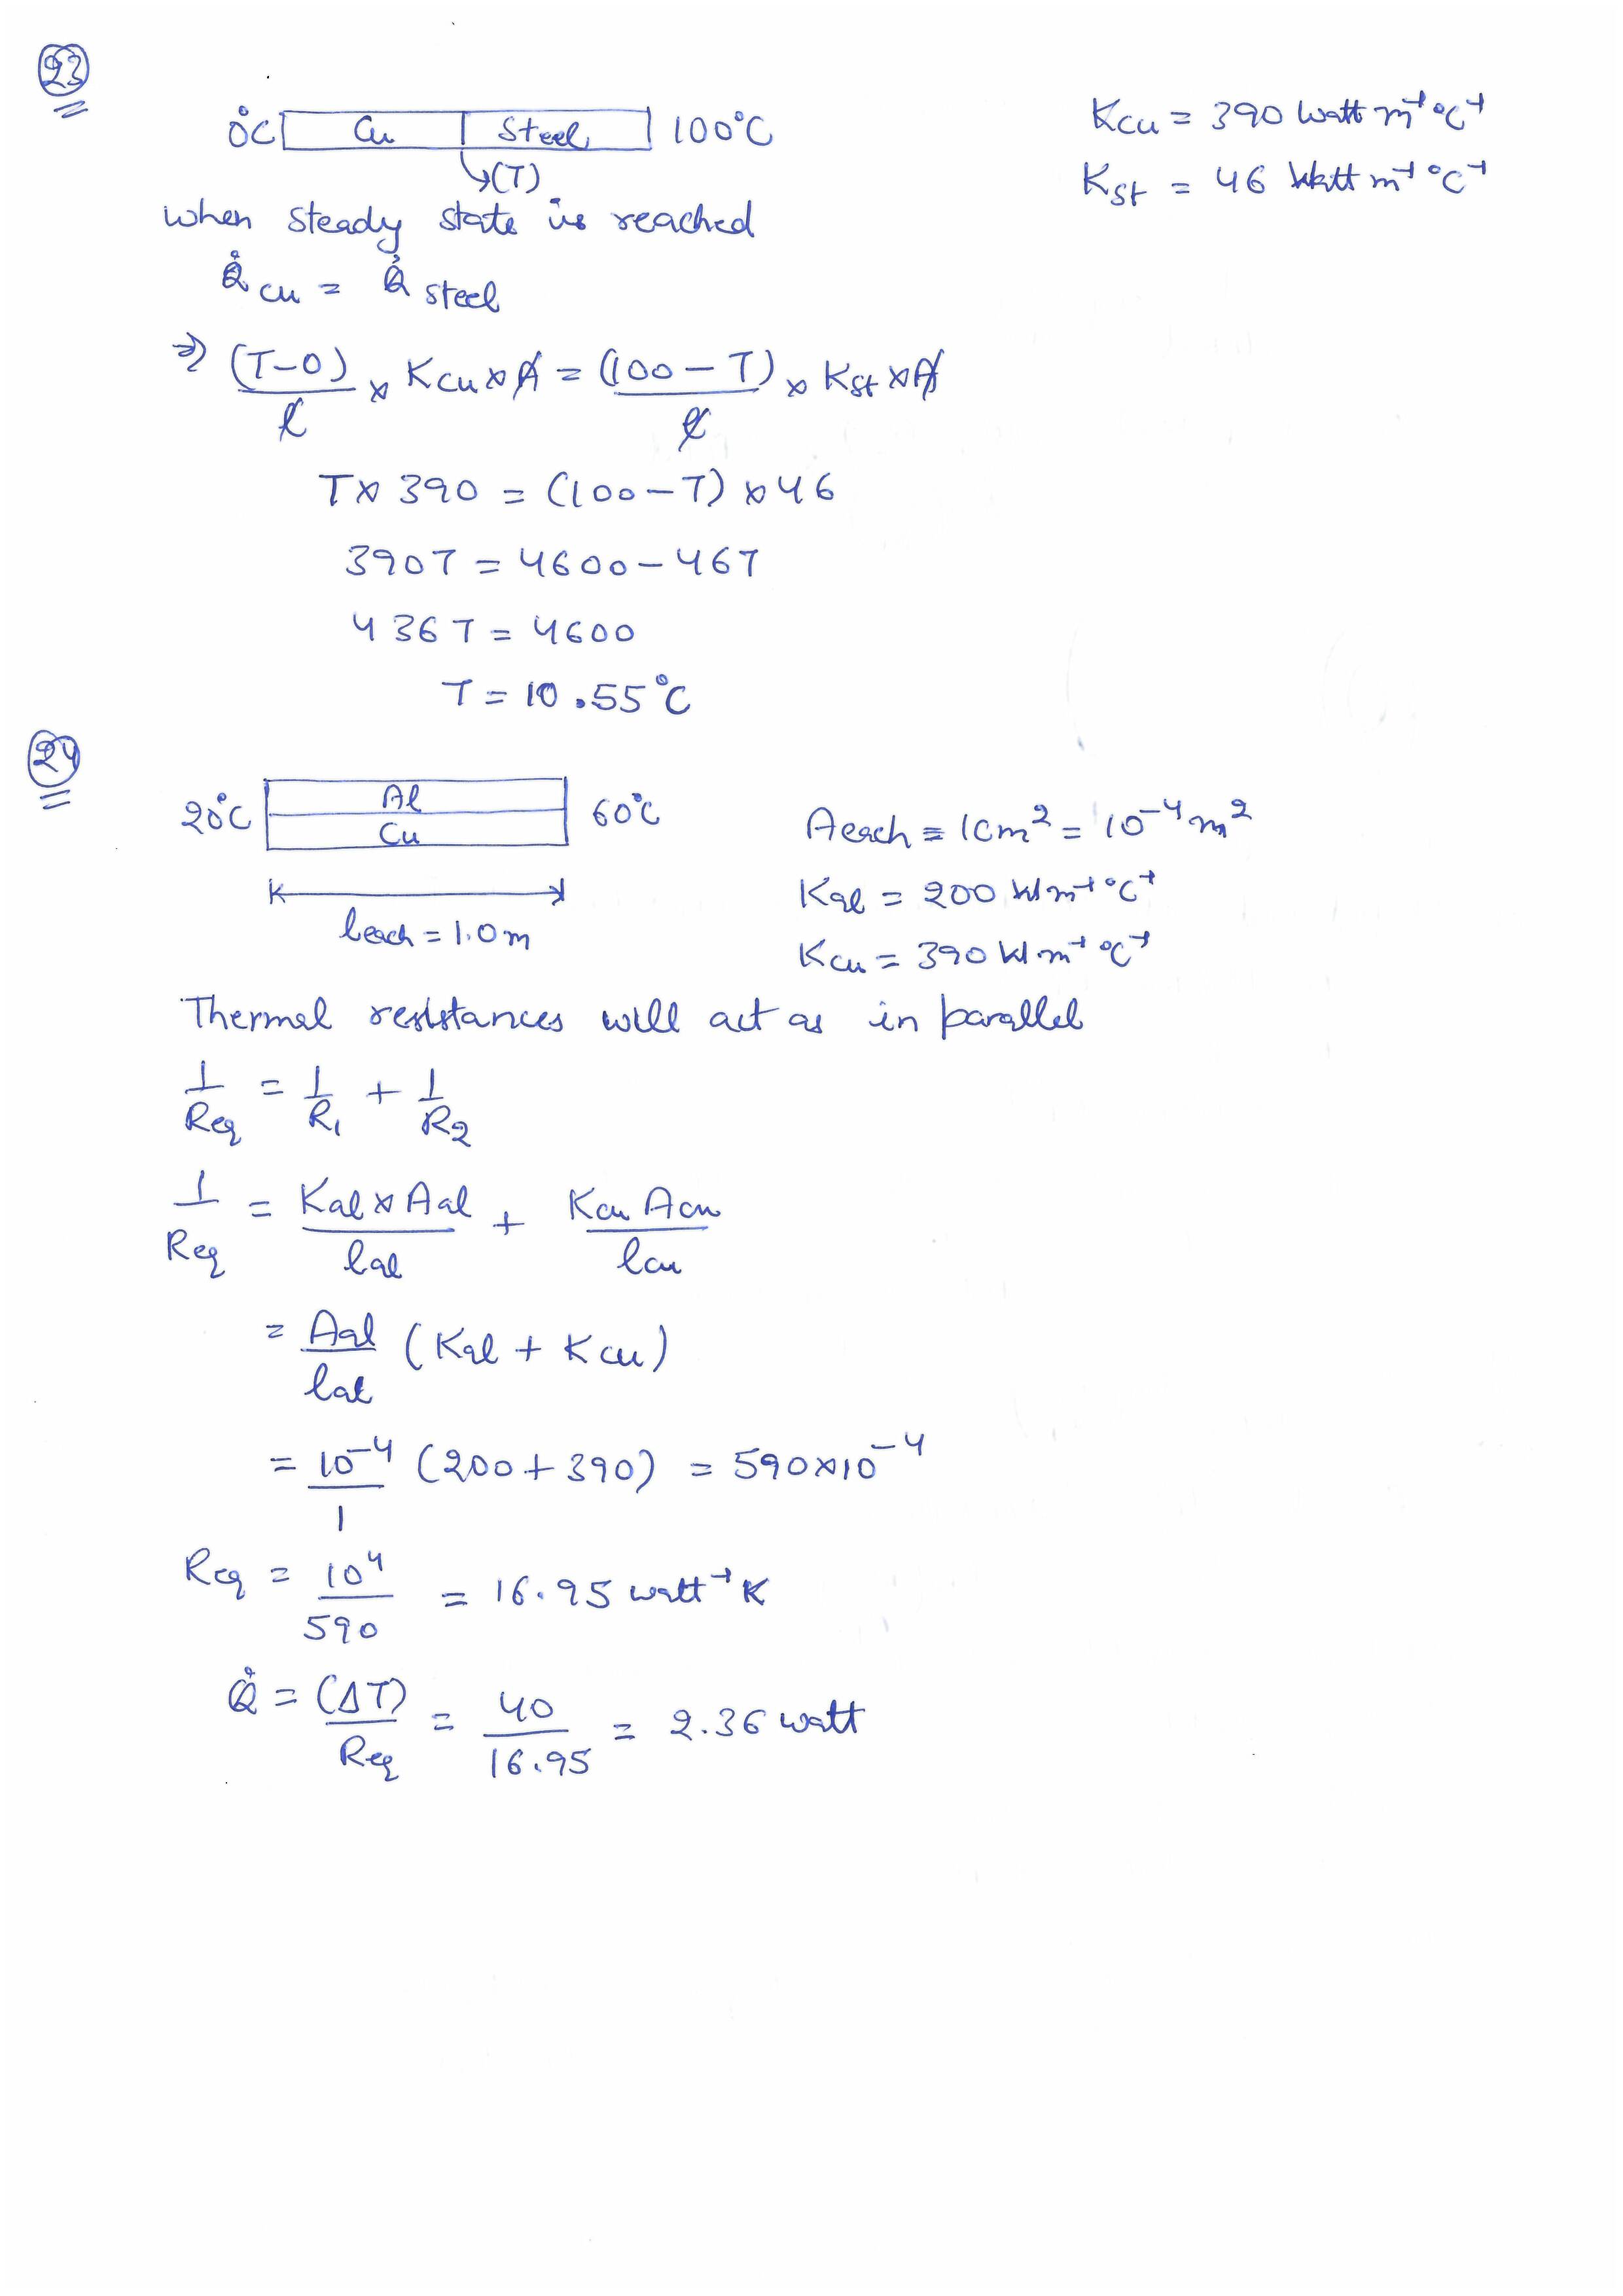 23
0°C Cu Steel 100°C
(T)
K_Cu = 390 Watt m⁻¹ °C⁻¹
K_St = 46 Watt m⁻¹ °C⁻¹
when steady state is reached
Q̇ cu = Q̇ steel
⇒ (T-0)/l × K_Cu × A = (100 - T)/l × K_St × A
T × 390 = (100 - T) × 46
390T = 4600 - 46T
436T = 4600
T = 10.55°C
24
20°C Al 60°C
Cu
l each = 1.0 m
A each = 1cm² = 10⁻⁴ m²
K_al = 200 W m⁻¹ °C⁻¹
K_cu = 390 W m⁻¹ °C⁻¹
Thermal resistances will act as in parallel
1/Req = 1/R₁ + 1/R₂
1/Req = Kal × Aal/lal + Kcu Acu/lcu
= Aal/lal (Kal + Kcu)
= 10⁻⁴/1 (200 + 390) = 590 × 10⁻⁴
Req = 10⁴/590 = 16.95 watt⁻¹ K
Q̇ = (ΔT)/Req = 40/16.95 = 2.36 watt